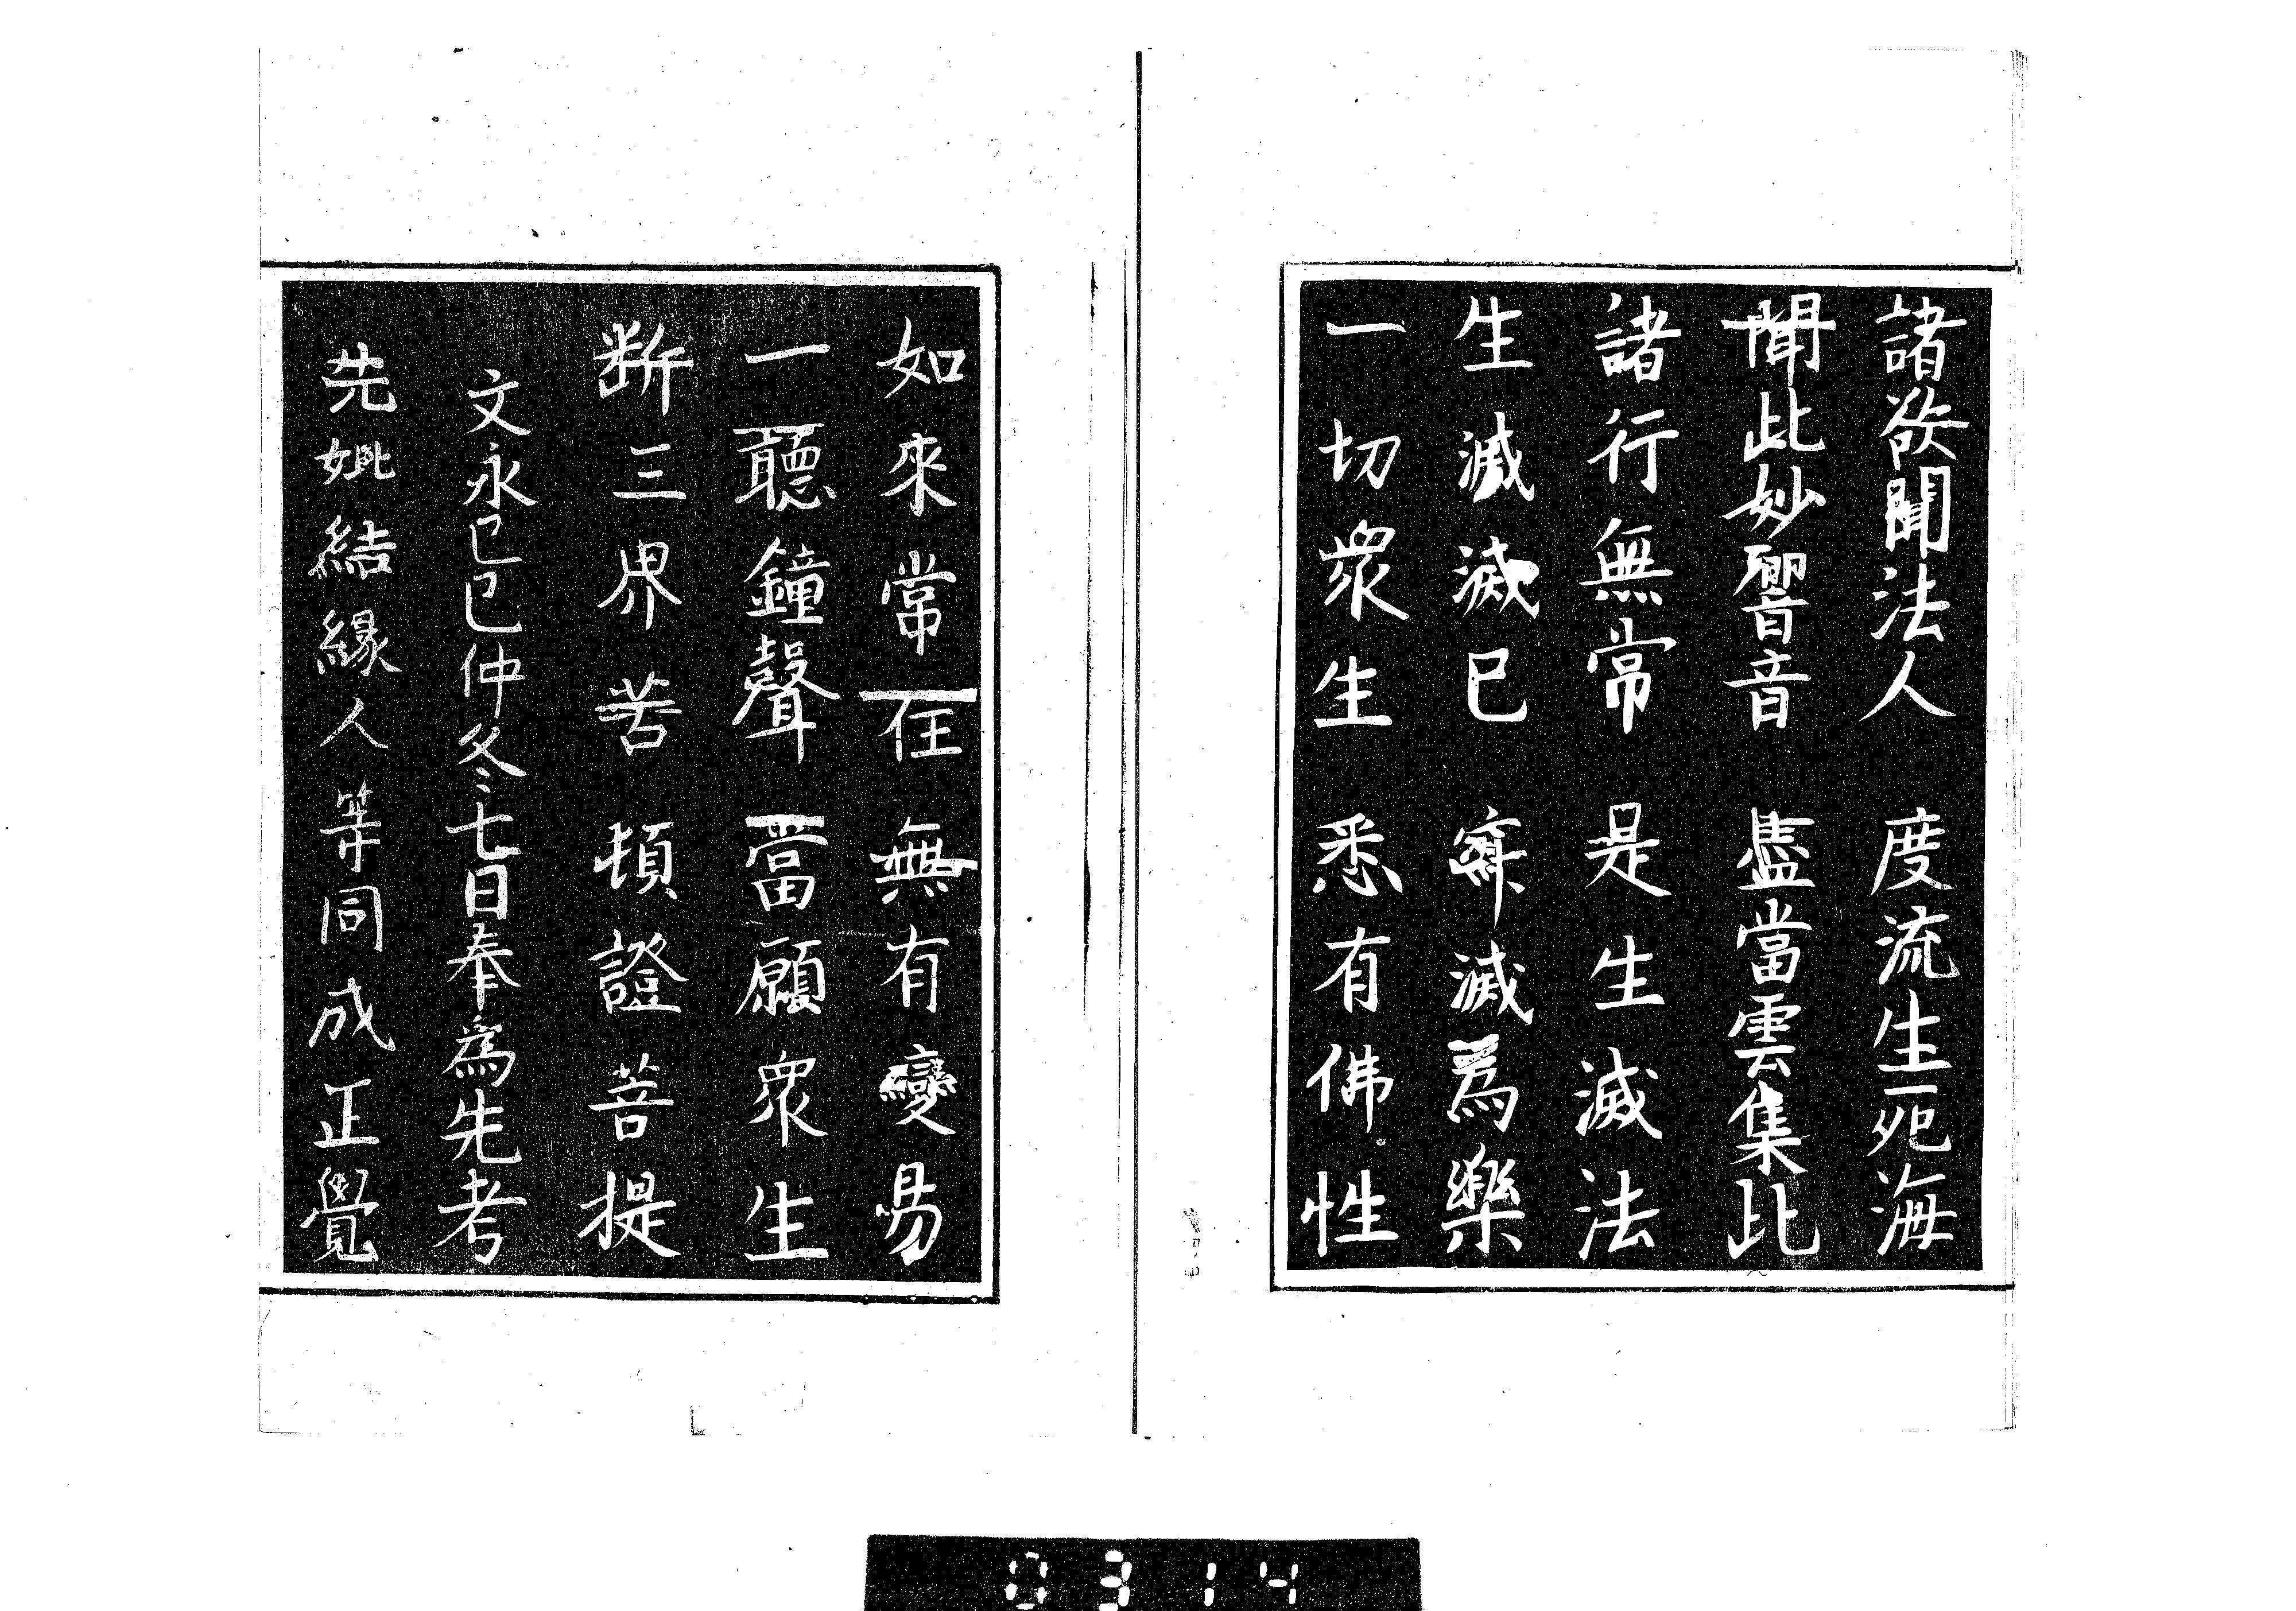 諸欲聞法人　度流生死海
聞此妙響音　盡當雲集此
諸行無常　是生滅法
生滅滅已　寂滅為樂
一切衆生　悉有佛性
如來常住　無有變易
一聽鐘聲　當願衆生
断三界苦　頓證菩提
文永己巳仲冬七日奉為先考
先妣結縁人等同成正覺
0314